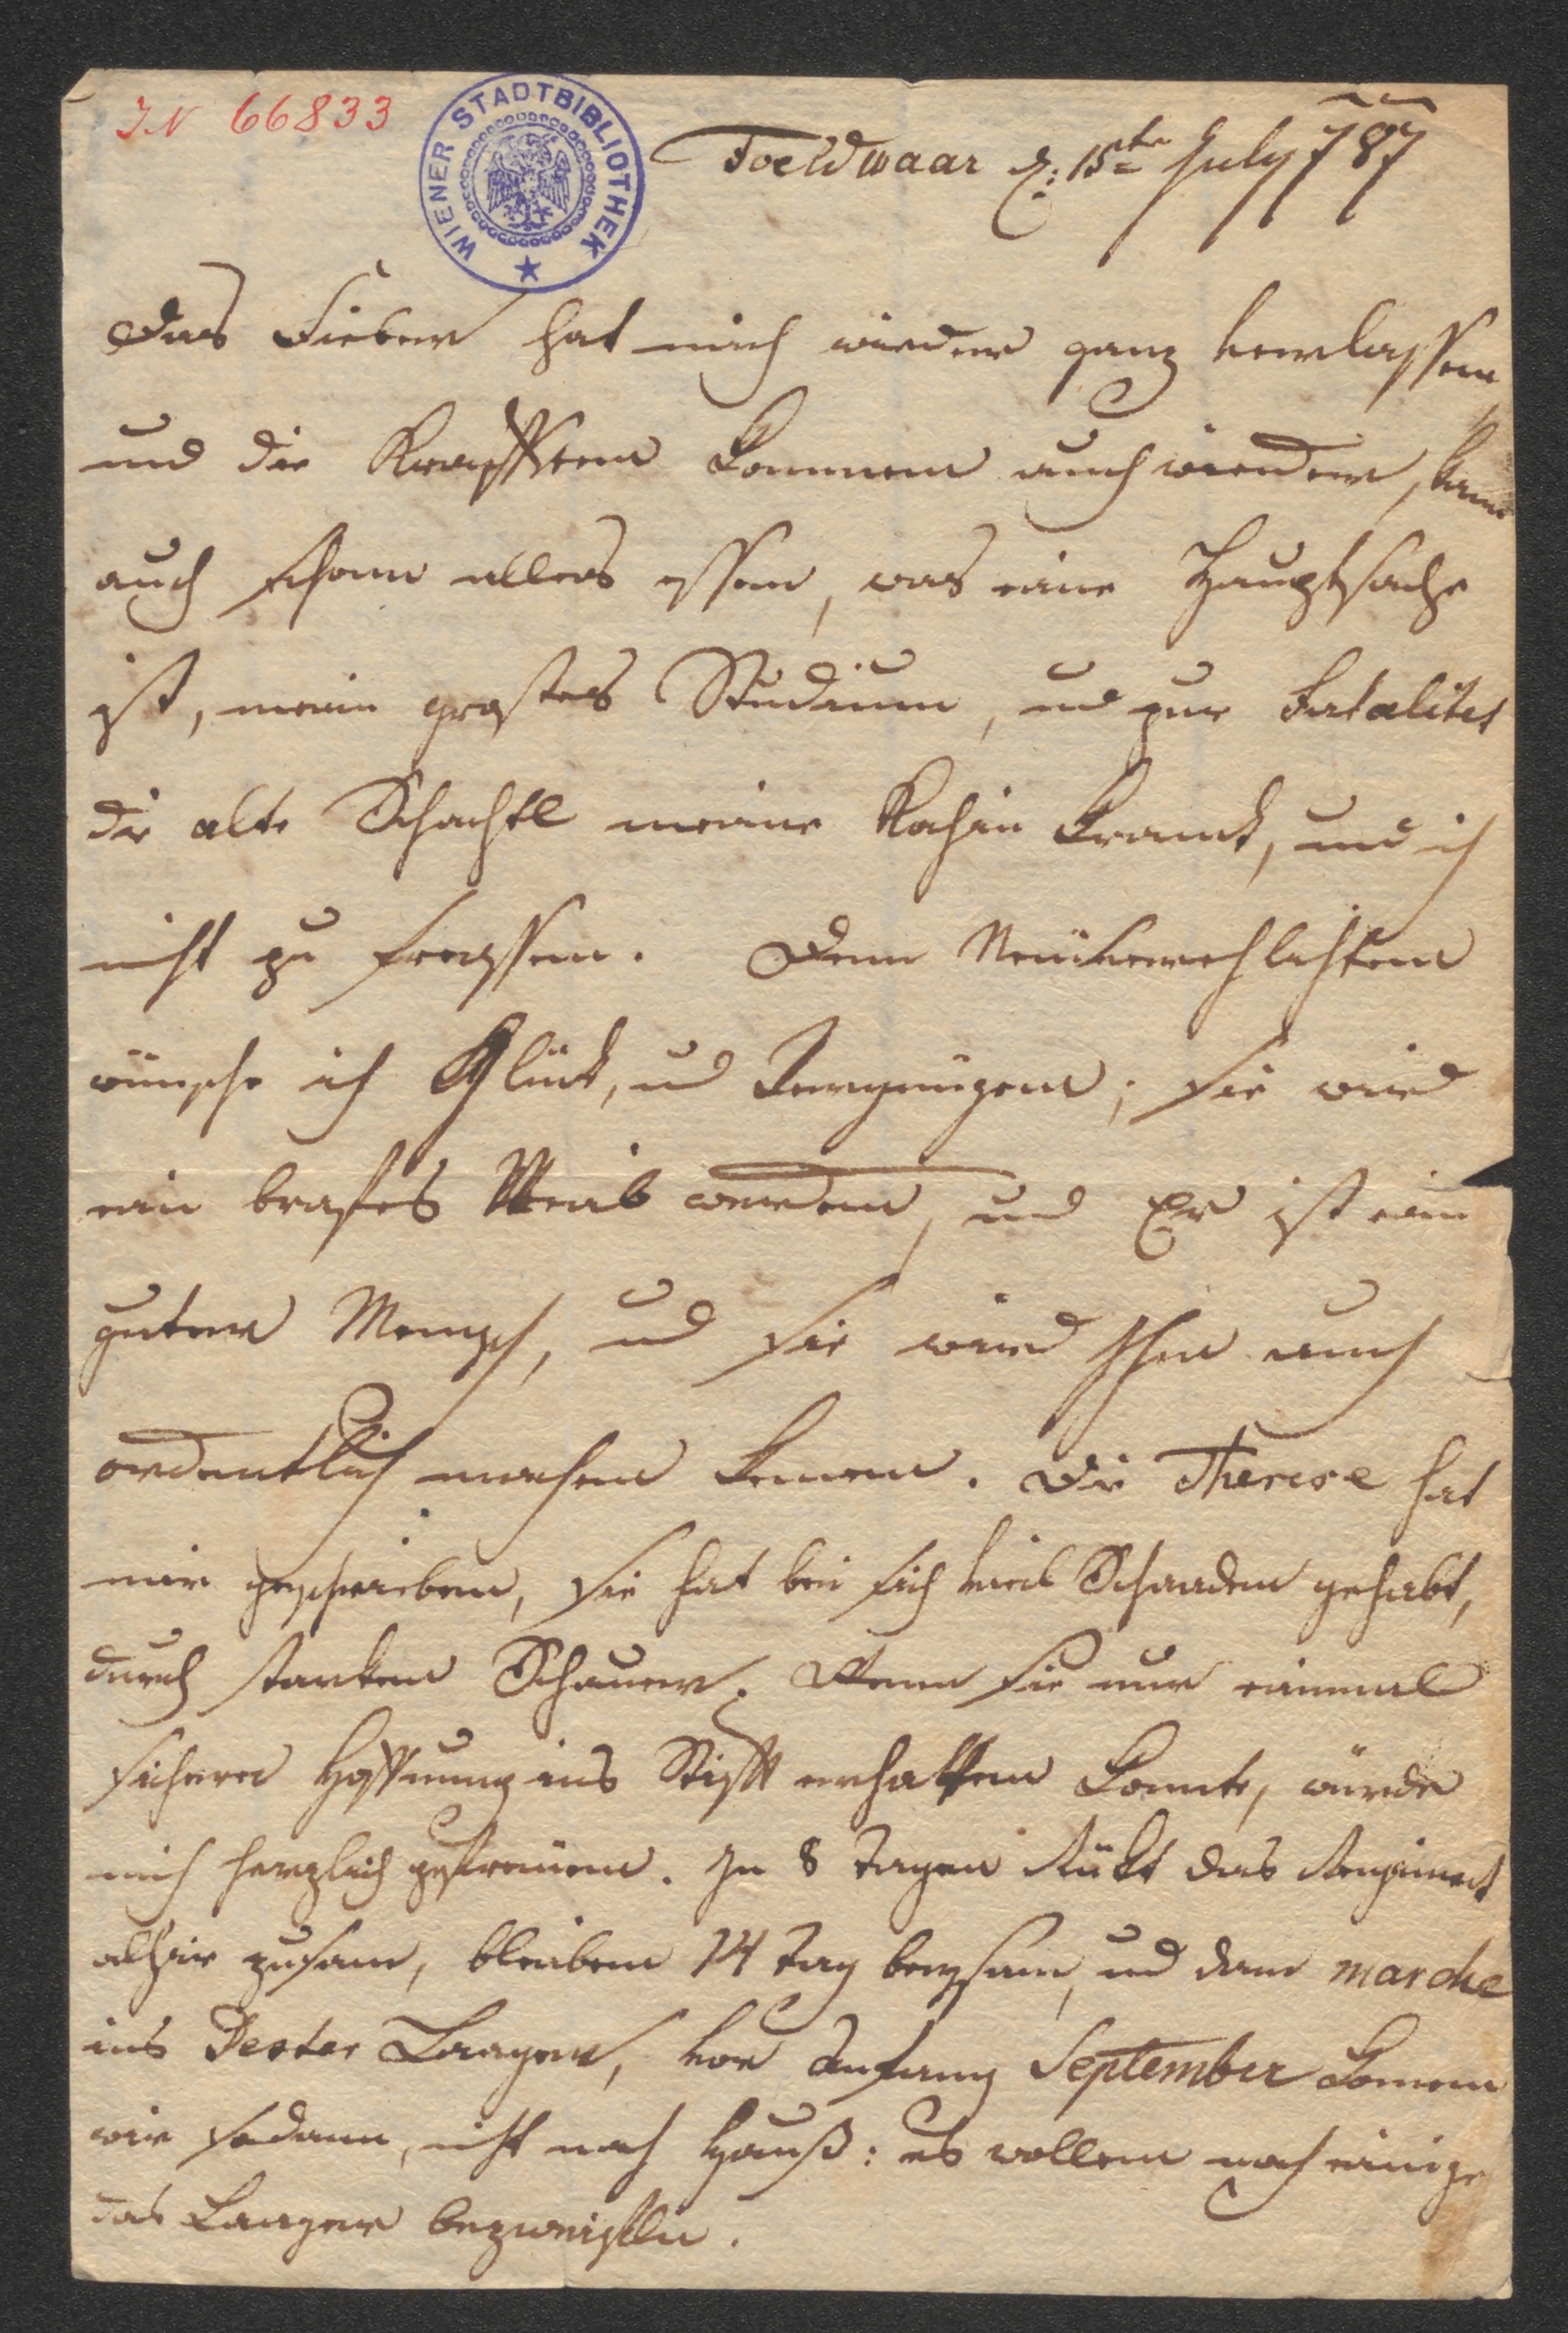 IN 66833
WIENER STADTBIBLIOTHEK
Foeldwaar d: 15ten July 787
Das Fieber hat mich wieder ganz verlassen
und die Kräfften kommen auch wieder, kann
auch schon alles essen, was eine Hauptsache
ist, mein grostes Studium, und zur Fatalitet
die alte Schachtl meine Kochin kranck, und ich
nicht zu fressen. Denn Neüverehlichten
wünsche ich Glück, und Vergnügen; sie wird
ein brafes Weib werden, und Er ist ein
guter Mensch, und sie wird Ihn auch
ordentlich machen kennen. Die Therese hat
mir geschrieben, sie hat bei sich viel Schaaden gehabt,
durch starken Schauer. Wenn sie nur einmal
sichere Hoffnung ins Stifft erhalten konnte, würde
mich herzlich gefreüen. In 8 Tagen Rükt das Regiment
alhier zusam, bleiben 14 Tag beysam, und dann marche
ins Pester Laager, vor Anfang September komen
wir sodann, nicht nach Hauß: es wollen noch einige
das Laager bezweiflen.